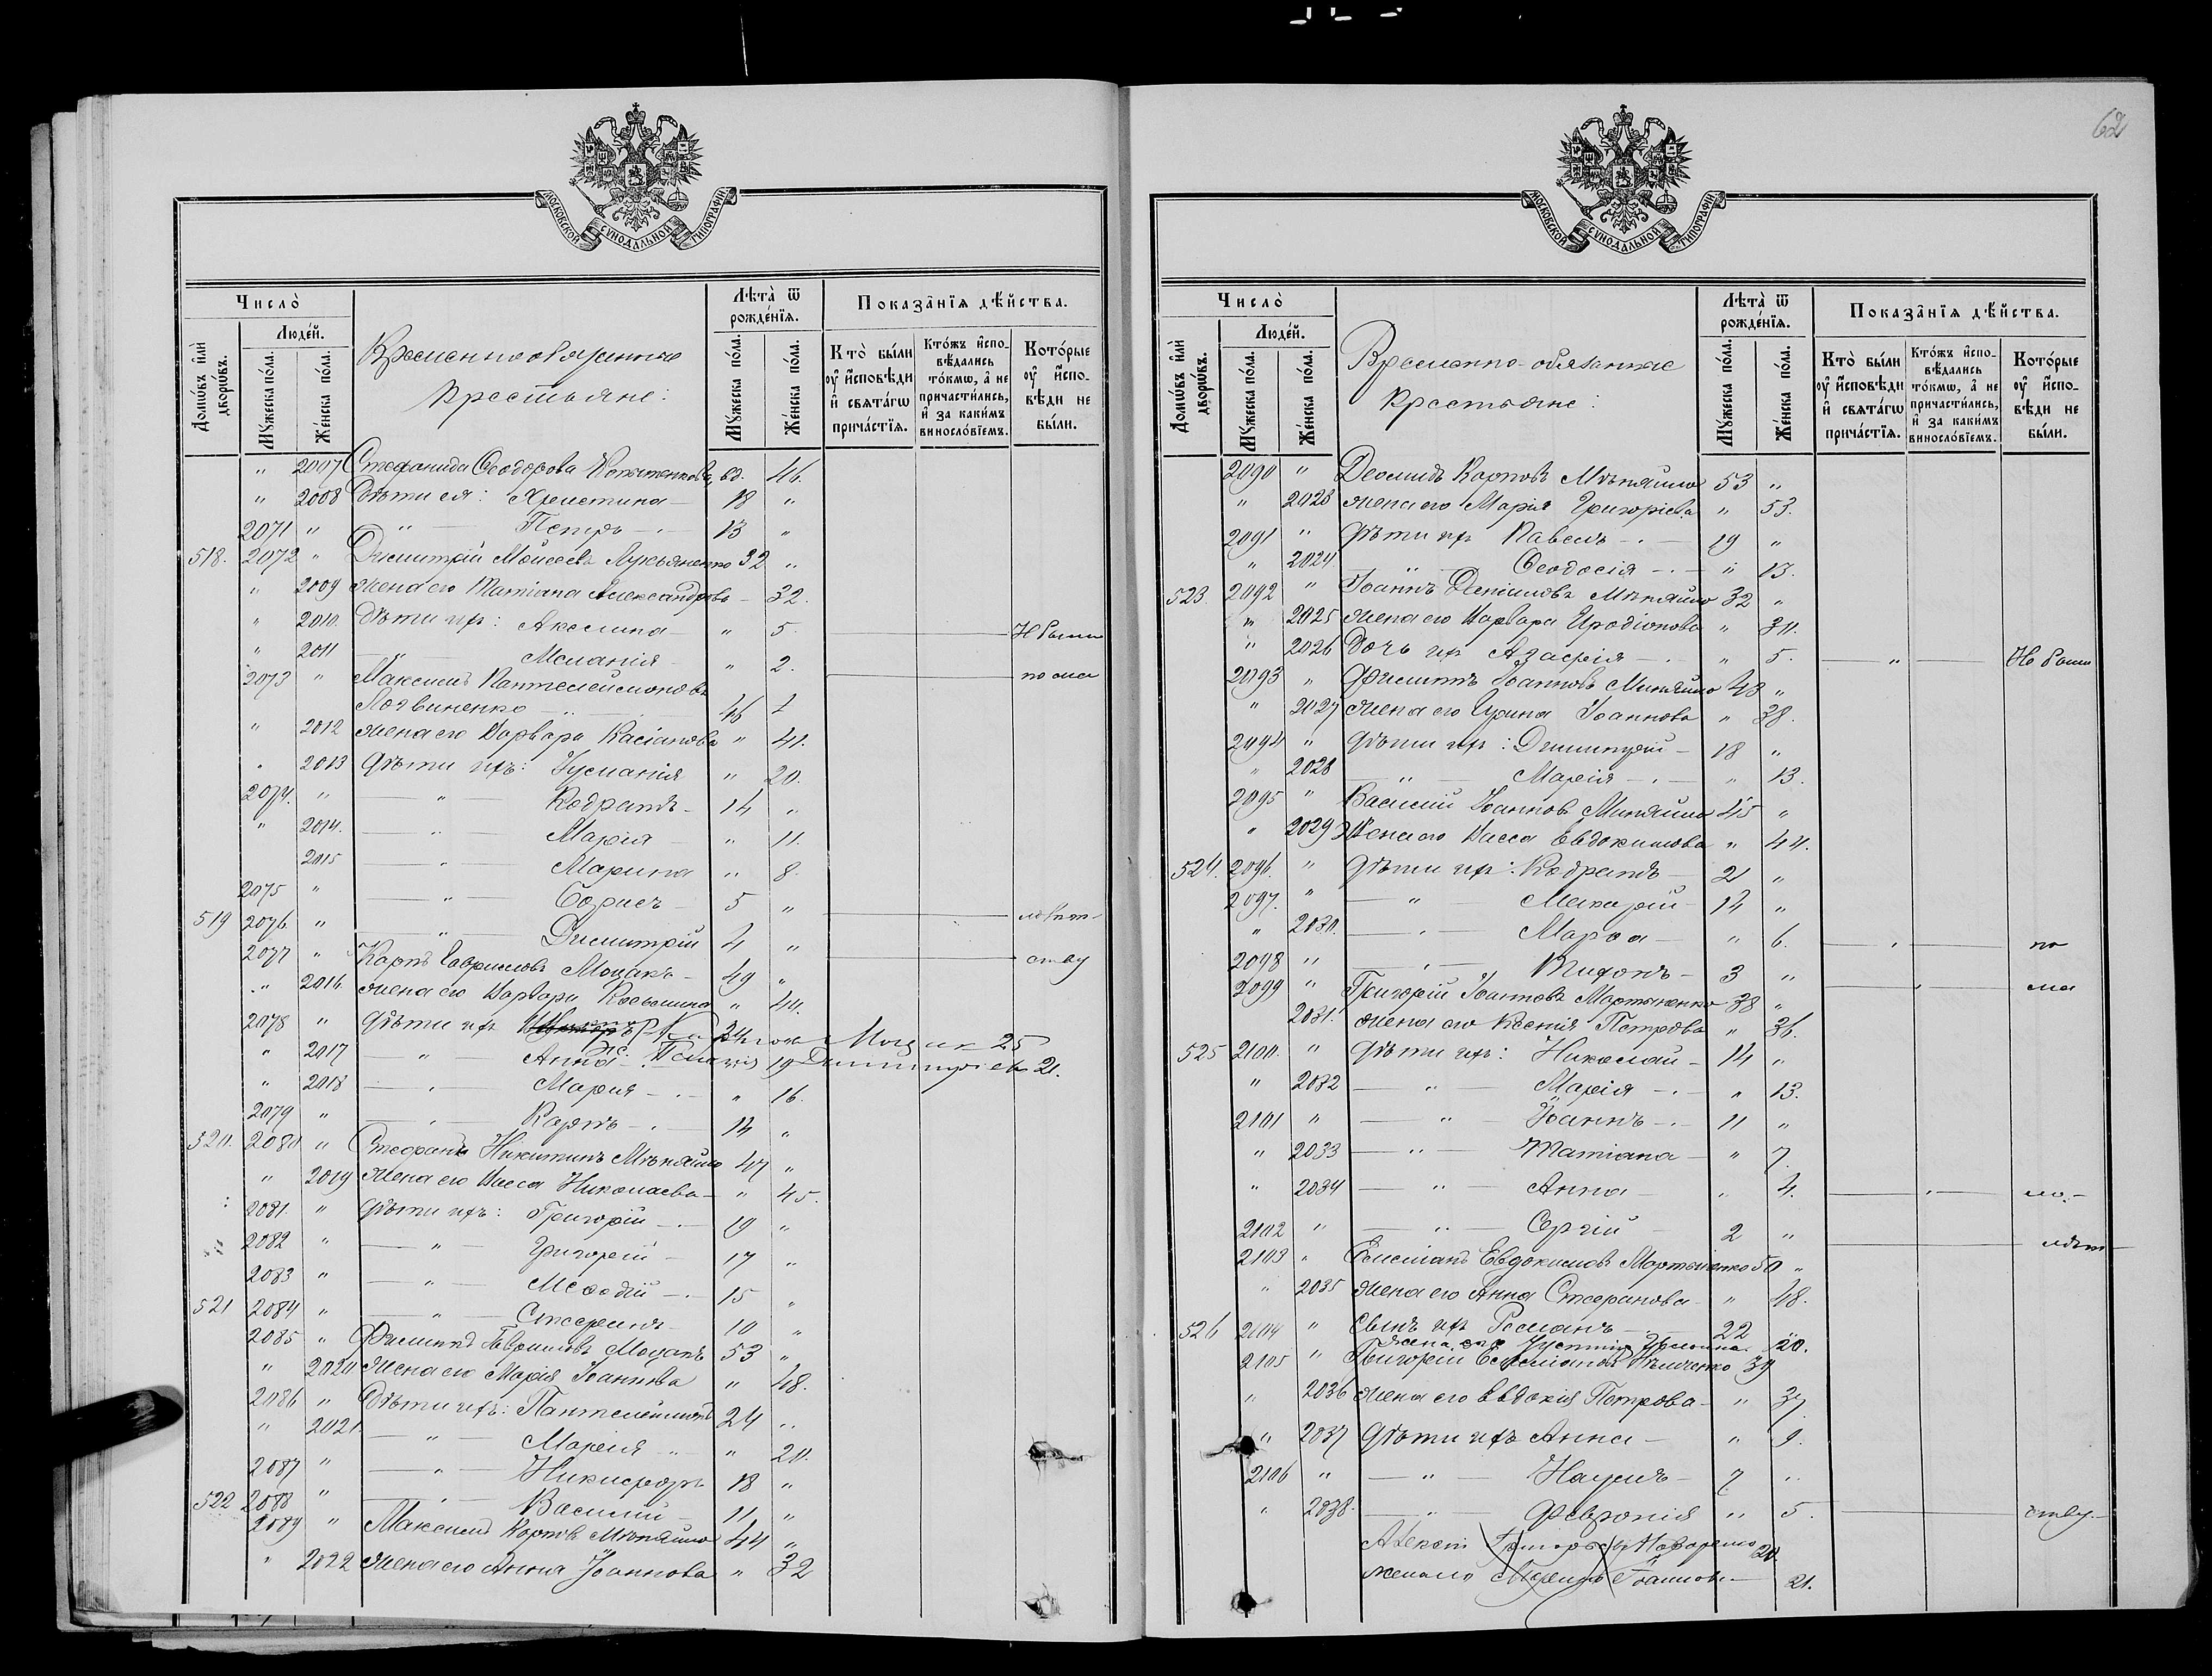 62
МОСКОВСКОЙ СѴНОДАЛЬНОЙ ТИПОГРАФІИ
Число̀
Домѡ́въ и҆лѝ дворѡ́въ.
Люде́й.
Мꙋжеска по́ла.
Же́нска по́ла.
Временнообязанные
крестьяне:
Лѣта̀ ѿ рожде́нїѧ.
Мꙋжеска по́ла.
Же́нска по́ла.
Показа̑нїѧ дѣ́йства.
Кто̀ бы́ли ѹ҆ и҆́сповѣди и҆ свѧта́гѡ прича́стїѧ.
Кто́жъ и҆спо-вѣ́дались то́кмѡ, а҆ не причасти́лись, и҆ за каки́мъ винословїемъ.
Кото́рые ѹ҆ и҆́спо-вѣди не бы́ли.
" 2007 Стефанида Ѳеодорова вд. 46.
" 2008 Дѣти ея: Христина 18 "
2071 " — " — Петръ — 13 "
518. 2072 " Димитрій Моѵсеевъ Лукьяненко 32 "
" 2009 жена его Татіана Александрова — 32.
" 2010. Дѣти ихъ: Акилина " 5. Не были
" 2011 — " — Меланія " 2. по ма
2073 " Максимъ Пантелеимоновъ
Логвиненко 46
" 2012 жена его Варвара Касіанова " 41.
" 2013 Дѣти ихъ: Іуліанія " 20.
2074. " — " — Кодратъ — 14 "
" 2014. — " — Марія " 11.
2015 — " — Марина " 8.
2075 " — " — Борисъ 5 " лолѣт-
519 2076 " — " — Димитрій 4 " ству
2077 " Карпъ Гавриловъ Моцакъ 49 "
" 2016 жена его Варвара Косьмина " 44.
2078 " Дѣти ихъ Моцак 25
" 2017 — " — Анна 19 Димитріев 21.
" 2018 — " — Марія — " 16.
2079 " — " — Карпъ — 14 "
520. 2080 " Стефанъ Никитинъ Мѣняйло 47 "
" 2019 жена его Васса Николаева — " 45.
2081 " Дѣти ихъ: Григорій — 19 "
2082 " — " — Григорій 17 "
2083 " — " — Меѳодій — 15 "
521 2084 " — " — Стефанъ 10 "
2085 " Филиппъ Гавриловъ Моцакъ 53 "
" 2020 жена его Марія Іоаннова " 48.
2086 " Дѣти ихъ: Пантелеимонъ 24 "
" 2021. — " — Марія " 20.
2087 " — " — Никифоръ 18 "
522 2088 " — " — Василій 11 "
2089 " Максимъ Карповъ Мѣняйло 44 "
" 2022 жена его Анна Іоаннова " 32
МОСКОВСКОЙ СѴНОДАЛЬНОЙ ТИПОГРАФІИ
Число̀
Домѡ́въ и҆лѝ дворѡ́въ.
Люде́й.
Мꙋжеска по́ла.
Же́нска по́ла.
Временно-обязанные
крестьяне:
Лѣта̀ ѿ рожде́нїѧ.
Мꙋжеска по́ла.
Же́нска по́ла.
Показа̑нїѧ дѣ́йства.
Кто̀ бы́ли ѹ҆ и҆́сповѣди и҆ свѧта́гѡ прича́стїѧ.
Кто́жъ и҆спо-вѣ́дались то́кмѡ, а҆ не причасти́лись, и҆ за каки́мъ винословїемъ.
Кото́рые ѹ҆ и҆́спо-вѣди не бы́ли.
2090 " Деомидъ Карповъ Мѣняйло 53 "
" 2023 жена его Марія Григоріева " 53.
2091 " Дѣти ихъ Павелъ — 19 "
" 2024 — " — Ѳеодосія — " 13.
523. 2092 " Іоаннъ Мѣняйло 32 "
" 2025 жена его Варвара Иродіонова " 30.
" 2026 Дочь ихъ Агафія — " 5. — " — Не были
2093 " Филиппъ Іоанновъ Миняйло 43 "
" 2027 жена его Ирина Іоаннова " 38.
2094 " Дѣти ихъ: Димитрій — 18 "
" 2028 — " — Марія — " 13.
2095 " Василій Іоанновъ Миняйло 45 "
" 2029 Жена его Васса Евдокимова " 44.
524. 2096. " Дѣти ихъ: Кодратъ — 21 "
2097. " — " — Макарій 14 "
" 2030. — " — Марѳа — " 6. — " — по
2098 " — " — Тихонъ — 3 " — " — ма
2099 " Григорій Іоанновъ Мартыненко 38 "
2031. жена его Ксенія Петрова " 36.
525 2100. " Дѣти ихъ: Николай — 14 "
" 2032 — " — Марія — " 13.
2101 " — " — Іоаннъ — 11 "
" 2033 — " — Татіана — " 7.
" 2034 — " — Анна — " 4. — " — ло-
2102 " — " — Сергій 2 " лѣт-
2103 " Емеліанъ Евдокимовъ Мартыненко 50 "
" 2035 жена его Анна Стефанова — " 48.
526 2104 " Сынъ ихъ Романъ 22
жена его Іустина 20.
2105 " Григорій Емеліановъ 39
" 2036 жена его Евдокія Петрова — " 37
" 2037 Дѣти ихъ Анна — " 9.
2106 " — " — Наумъ — 7 "
" 2038. — " — Февронія " 5. ству.
Алексѣй 20.
жена его Іоаннова — 21.